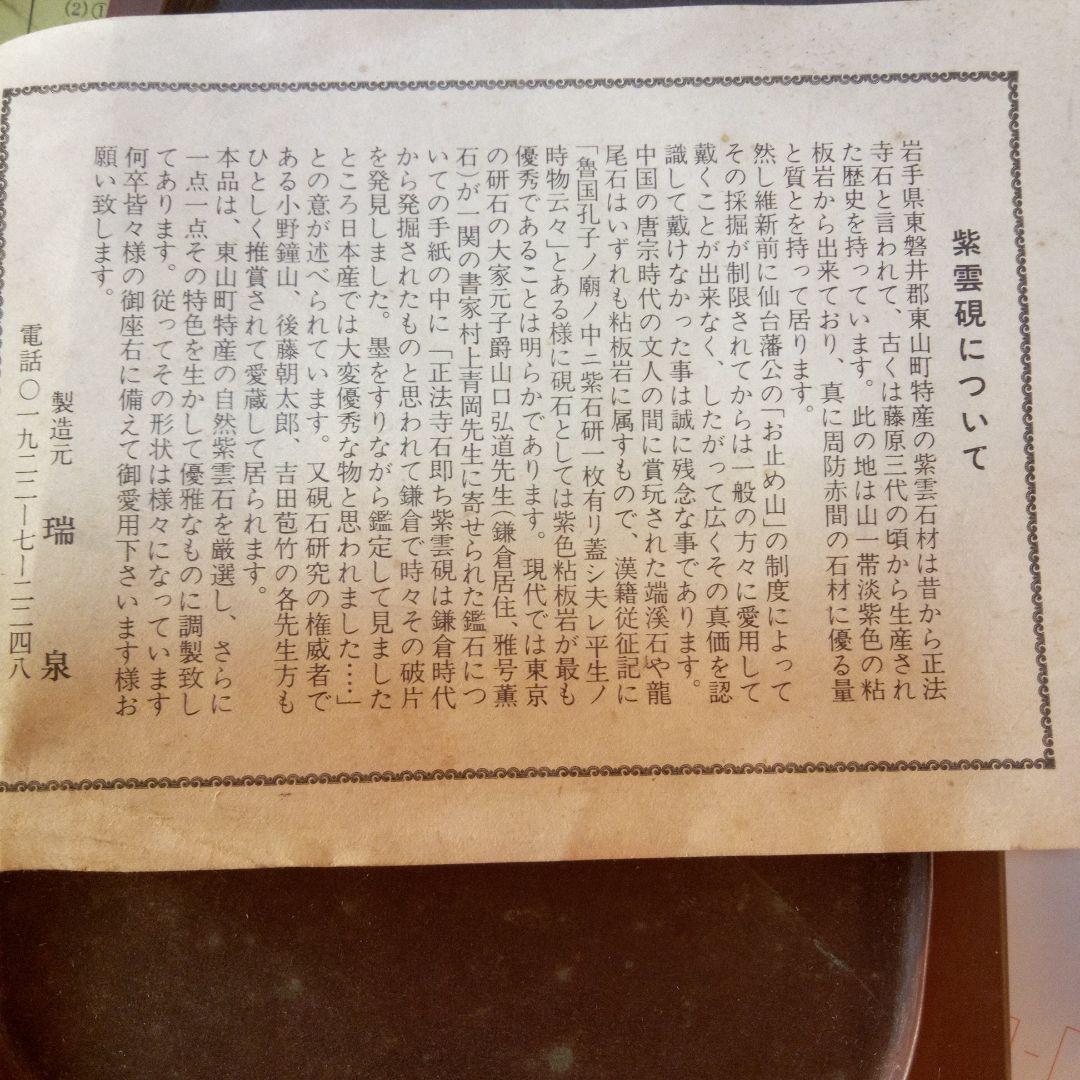 紫雲硯について
岩手県東磐井郡東山町特産の紫雲石材は昔から正法
寺石と言われて、古くは藤原三代の頃から生産され
た歴史を持っています。此の地は山一帯淡紫色の粘
板岩から出来ており、真に周防赤間の石材に優る量
と質とを持って居ります。
然し維新前に仙台藩公の「お止め山」の制度によって
その採掘が制限されてからは一般の方々に愛用して
戴くことが出来なく、したがって広くその真価を認
識して戴けなかった事は誠に残念な事であります。
中国の唐宗時代の文人の間に賞玩された端溪石や龍
尾石はいずれも粘板岩に属すもので、漢籍従征記に
「魯国孔子ノ廟ノ中ニ紫石研一枚有リ蓋シ夫レ平生ノ
時物云々」とある様に硯石としては紫色粘板岩が最も
優秀であることは明らかであります。現代では東京
の研石の大家元子爵山口弘道先生(鎌倉居住、雅号薫
石)が一関の書家村上青岡先生に寄せられた鑑石につ
いての手紙の中に「正法寺石即ち紫雲硯は鎌倉時代
から発掘されたものと思われて鎌倉で時々その破片
を発見しました。墨をすりながら鑑定して見ました
ところ日本産では大変優秀な物と思われました‥‥」
との意が述べられています。又硯石研究の権威者で
ある小野鐘山、後藤朝太郎、吉田苞竹の各先生方も
ひとしく推賞されて愛蔵して居られます。
本品は、東山町特産の自然紫雲石を厳選し、さらに
一点一点その特色を生かして優雅なものに調製致し
てあります。従ってその形状は様々になっています
何卒皆々様の御座右に備えて御愛用下さいます様お
願い致します。
製造元 瑞泉
電話〇一九二二ー七ー二二四八
(2)①